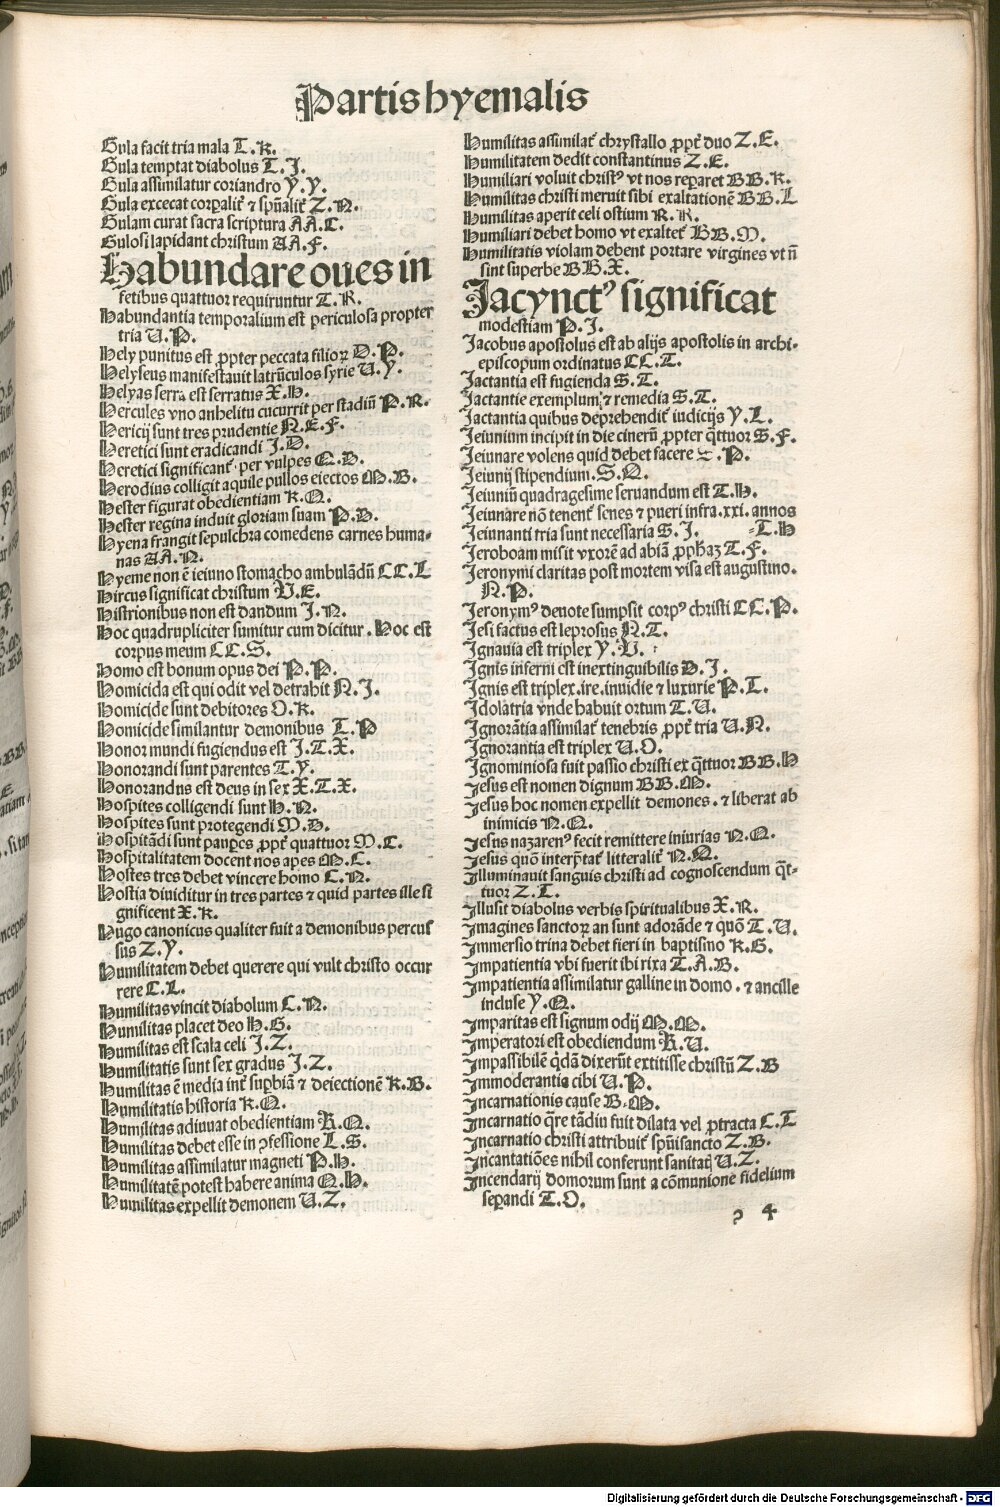 Partis hyemalis
Gula facit tria mala T.K.
Gula temptat diabolus T.J.
Gula assimilatur coriandro Y.Y.
Gula excecat corꝑalit᷑ ⁊ spũalit᷑ Z.N.
Gulam curat sacra scriptura AA.C.
Gulosi lapidant christum AA.F.
Habundare oues in
fetibus quattuor requiruntur T.R.
Habundantia temporalium est periculosa propter
tria U.P.
Hely punitus est ꝓpter peccata filioꝝ D.P.
Helyseus manifestauit latrũculos syrie U.Y.
Helyas serra est serratus X.H.
Hercules vno anhelitu cucurrit per stadiũ P.R.
Hericij sunt tres prudentie N.E.F.
Heretici sunt eradicandi J.D.
Heretici significant᷑ per vulpes Q.D.
Herodius colligit aquile pullos eiectos M.B.
Hester figurat obedientiam K.Q.
Hester regina induit gloriam suam P.D.
Hyena frangit sepulchra comedens carnes huma-
nas AA.N.
Hyeme non ē ieiuno stomacho ambulãdũ CC.L
Hircus significat christum V.E.
Histrionibus non est dandum J.N.
Hoc quadrupliciter sumitur cum dicitur. Hoc est
corpus meum CC.S.
Homo est bonum opus dei P.P.
Homicida est qui odit vel detrahit N.J.
Homicide sunt debitores O.K.
Homicide similantur demonibus T.P
Honor mundi fugiendus est J.T.X.
Honorandi sunt parentes T.Y.
Honorandus est deus in sex X.T.X.
Hospites colligendi sunt H.N.
Hospites sunt protegendi M.D.
Hospitãdi sunt pauꝑes ꝓpt᷑ quattuor M.C.
Hospitalitatem docent nos apes M.C.
Hostes tres debet vincere homo C.N.
Hostia diuiditur in tres partes ⁊ quid partes ille si
gnificent X.K.
Hugo canonicus qualiter fuit a demonibus percus
sus Z.Y.
Humilitatem debet querere qui vult christo occur
rere C.L.
Humilitas vincit diabolum C.N.
Humilitas placet deo H.G.
Humilitas est scala celi J.Z.
Humilitatis sunt sex gradus J.Z.
Humilitas ē media int᷑ suꝑbiã ⁊ deiectionē K.B.
Humilitatis historia K.Q.
Humilitas adiuuat obedientiam R.Q.
Humilitas debet esse in ꝯfessione L.S.
Humilitas assimilatur magneti P.H.
Humilitatē potest habere anima Q.H.
Humilitas expellit demonem U.Z.
Humilitas assimilat᷑ chrystallo ꝓpt᷑ duo Z.E.
Humilitatem dedit constantinus Z.E.
Humiliari voluit christꝰ vt nos reꝑaret BB.K.
Humilitas christi meruit sibi exaltationē BB.L
Humilitas aperit celi ostium R.R.
Humiliari debet homo vt exaltet᷑ BB.M.
Humilitatis violam debent portare virgines vt ñ
sint superbe BB.X.
Jacynctꝰ significat
modestiam P.J.
Jacobus apostolus est ab alijs apostolis in archi-
episcopum ordinatus CC.T.
Jactantia est fugienda S.T.
Jactantie exemplum ⁊ remedia S.T.
Jactantia quibus deprehendit᷑ iudicijs Y.L.
Jeiunium incipit in die cinerũ ꝓpter q̃ttuor S.F.
Jeiunare volens quid debet facere S.P.
Jeiunij stipendium. S.Q.
Jeiuniũ quadragesime seruandum est T.H.
Jeiunare nõ tenent᷑ senes ⁊ pueri infra .xxi. annos
Jeiunanti tria sunt necessaria S.J. T.H
Jeroboam misit vxorē ad abiã ꝓphãꝫ T.F.
Jeronymi claritas post mortem visa est augustino.
N.P.
Jeronymꝰ deuote sumpsit corpꝰ christi CC.P.
Jesi factus est leprosus N.T.
Ignauia est triplex Y.U.
Ignis inferni est inextinguibilis D.J.
Ignis est triplex. ire. inuidie ⁊ luxurie P.T.
Idolatria vnde habuit ortum T.U.
Ignorãtia assimilat᷑ tenebris ꝓpt᷑ tria U.N.
Ignorantia est triplex U.O.
Ignominiosa fuit passio christi ex q̃ttuor BB.H
Jesus est nomen dignum BB.M.
Jesus hoc nomen expellit demones. ⁊ liberat ab
inimicis N.Q.
Jesus nazarenꝰ fecit remittere iniurias N.Q.
Jesus quõ interp̃tat᷑ litteralit᷑ N.Q.
Illuminauit sanguis christi ad cognoscendum q̃t-
tuor Z.T.
Illusit diabolus verbis spiritualibus X.R.
Imagines sanctoꝝ an sunt adorãde ⁊ quõ T.U.
Immersio trina debet fieri in baptismo K.G.
Impatientia vbi fuerit ibi rixa T.A.B.
Impatientia assimilatur galline in domo. ⁊ ancille
incluse Y.Q.
Imparitas est signum odij M.M.
Imperatori est obediendum R.U.
Impassibilē q̇dã dixerũt extitisse christũ Z.B
Immoderantia cibi U.P.
Incarnationis cause B.M.
Incarnatio q̃re tãdiu fuit dilata vel ꝓtracta C.T
Incarnatio christi attribuit᷑ spũisancto Z.B.
Incantatiões nihil conferunt sanitati U.Z.
Incendarij domorum sunt a cõmunione fidelium
seꝑandi T.O.
? 4
Digitalisierung gefördert durch die Deutsche Forschungsgemeinschaft - DFG